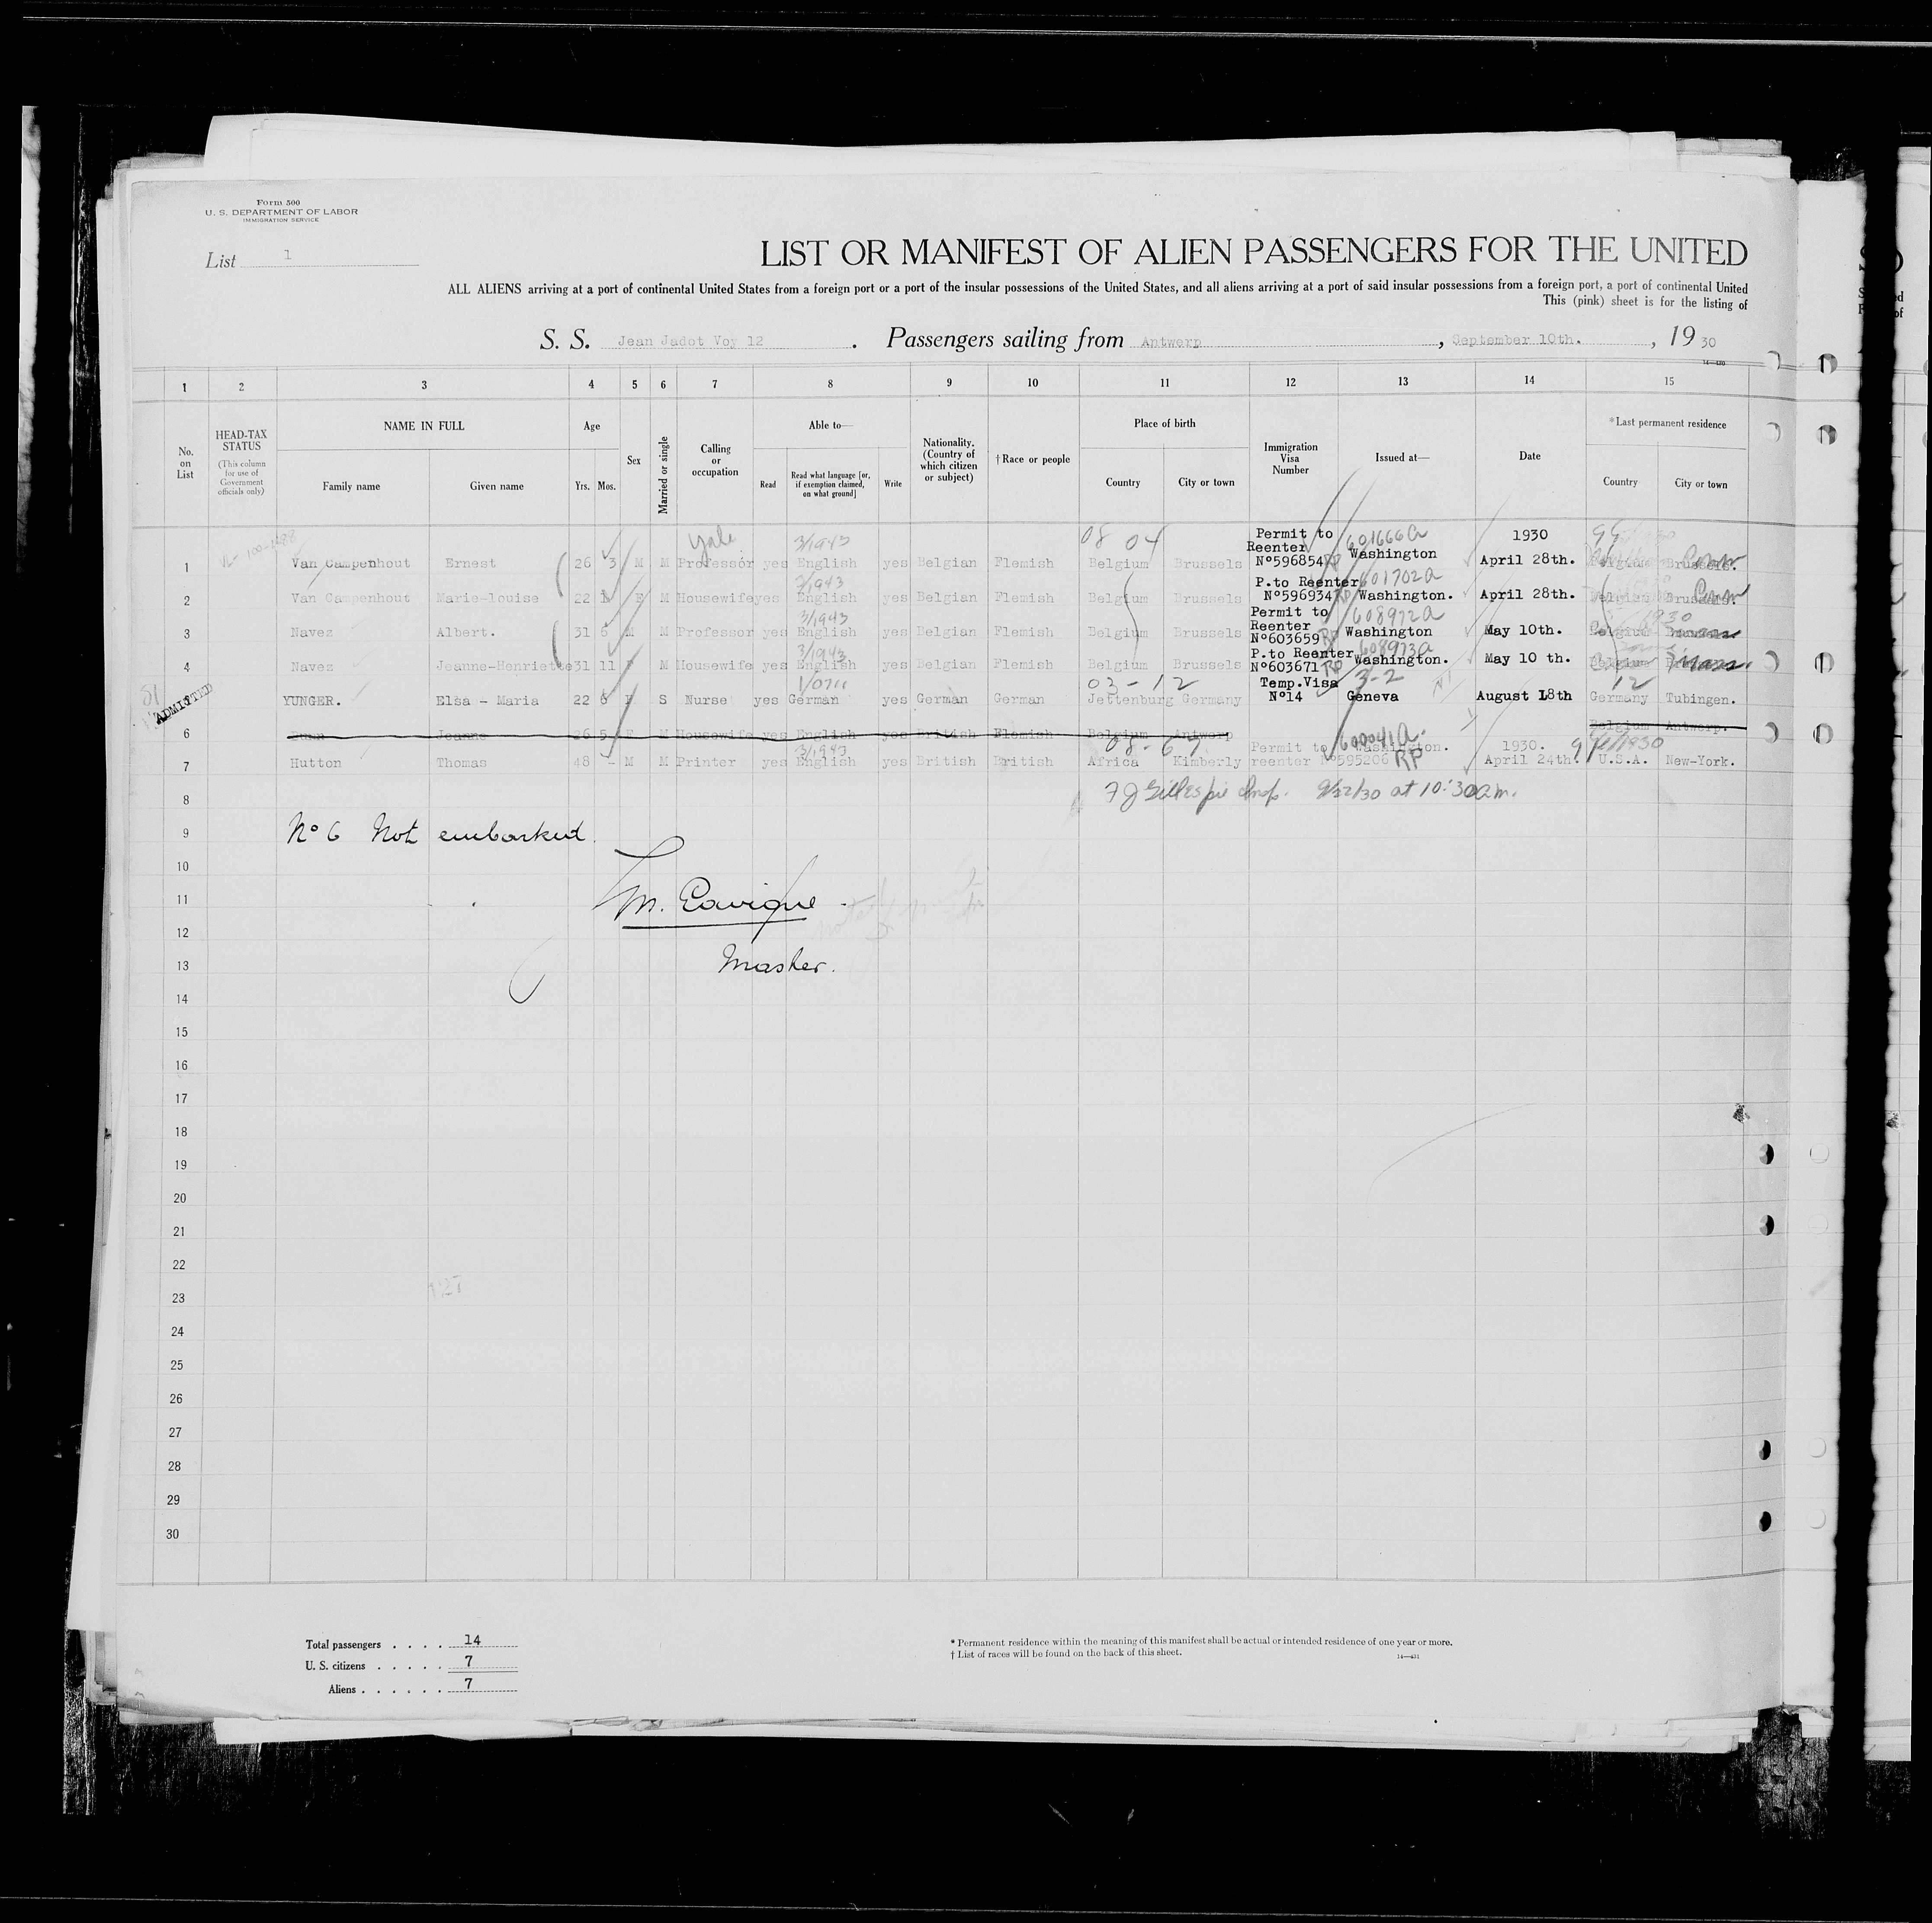 Form 500
U. S. DEPARTMENT OF LABOR
IMMIGRATION SERVICE
List 1
LIST OR MANIFEST OF ALIEN PASSENGERS FOR THE UNITED
ALL ALIENS arriving at a port of continental United States from a foreign port or a port of the insular possessions of the United States, and all aliens arriving at a port of said insular possessions from a foreign port, a port of continental United
This (pink) sheet is for the listing of
S. S. Jean Jadot Voy 12 . Passengers sailing from Antwerp , September 10th. , 19 30
14—430
1 2 3 4 5 6 7 8 9 10 11 12 13 14 15
No. on List
HEAD-TAX STATUS
(This column for use of Government officials only)
NAME IN FULL
Family name
Given name
Age
Yrs.
Mos.
Sex
Married or single
Calling or occupation
Able to—
Read
Read what language [or, if exemption claimed, on what ground]
Write
Nationality. (Country of which citizen or subject)
† Race or people
Place of birth
Country
City or town
Immigration Visa Number
Issued at—
Date
* Last permanent residence
Country
City or town
yale 3/1943 08 04 Permit to 601666a 1930
1 Van Campenhout Ernest 26 3 M M Professor yes English yes Belgian Flemish Belgium Brussels Reenter N°596854 RP Washington April 28th. Belgium Brussels. Conn
3/1943 P.to Reenter 601702a
2 Van Campenhout Marie-louise 22 F M Housewife yes English yes Belgian Flemish Belgium Brussels N°596934 RP Washington. April 28th. Belgium Brussels. Conn
3/1943 Permit to 608972a 1930
3 Navez Albert. 31 6 M M Professor yes English yes Belgian Flemish Belgium Brussels Reenter N°603659 RP Washington May 10th. Belgium
3/1943 P.to Reenter 608973a
4 Navez Jeanne-Henriette 31 11 F M Housewife yes English yes Belgian Flemish Belgium Brussels N°603671 RP Washington. May 10 th. Belgium Mass.
ADMITTED 03-12 Temp.Visa 3-2 12
YUNGER. Elsa - Maria 22 6 F S Nurse yes German yes German German Jettenburg Germany N°14 Geneva August 18th Germany Tubingen.
6 Jeanne 26 5 F M Housewife yes English yes British Flemish Belgium Antwerp Belgium Antwerp.
3/1943 08-67 Permit to 600041a. Washington. 1930.
7 Hutton Thomas 48 - M M Printer yes English yes British British Africa Kimberly reenter N°595206 RP April 24th. U.S.A. New-York.
8 F J Gillespie Insp. 9/22/30 at 10:30 am.
9 N° 6 Not embarked.
10
11 M.
12
13 Master.
14
15
16
17
18
19
20
21
22
23
24
25
26
27
28
29
30
Total passengers . . . . 14
U. S. citizens . . . . . 7
Aliens . . . . . . 7
* Permanent residence within the meaning of this manifest shall be actual or intended residence of one year or more.
† List of races will be found on the back of this sheet.
14—431